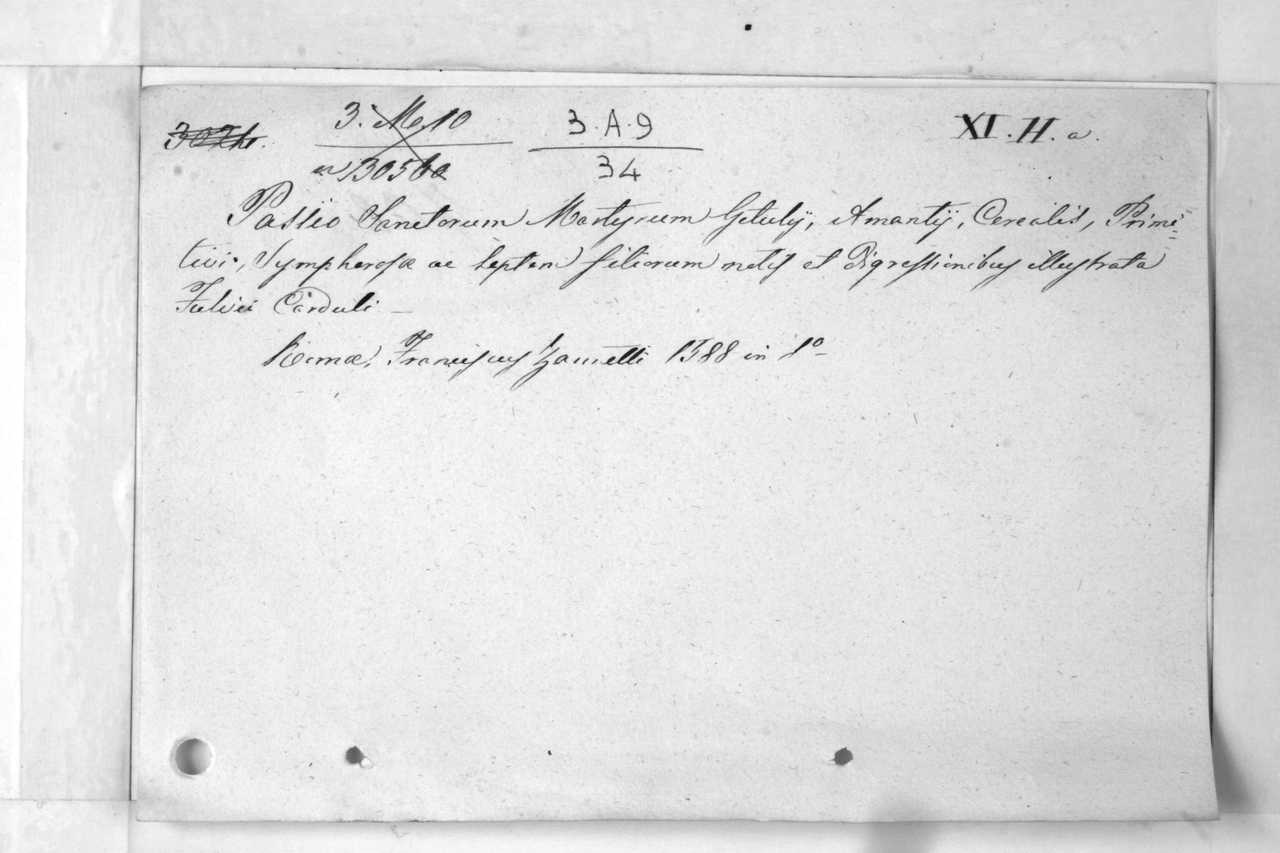 3. M. 10    3.A.9    XI.H.a.
13056a    34
Passio Sanctorum Martyrum Getulij, Amantij, Cerealis, Primi=
tivi, Sympherosæ ac septem filiorum notis et Digressionibus illustrata
Fulvii Carduli
Romæ, Franciscus Zannetti 1588 in 8º